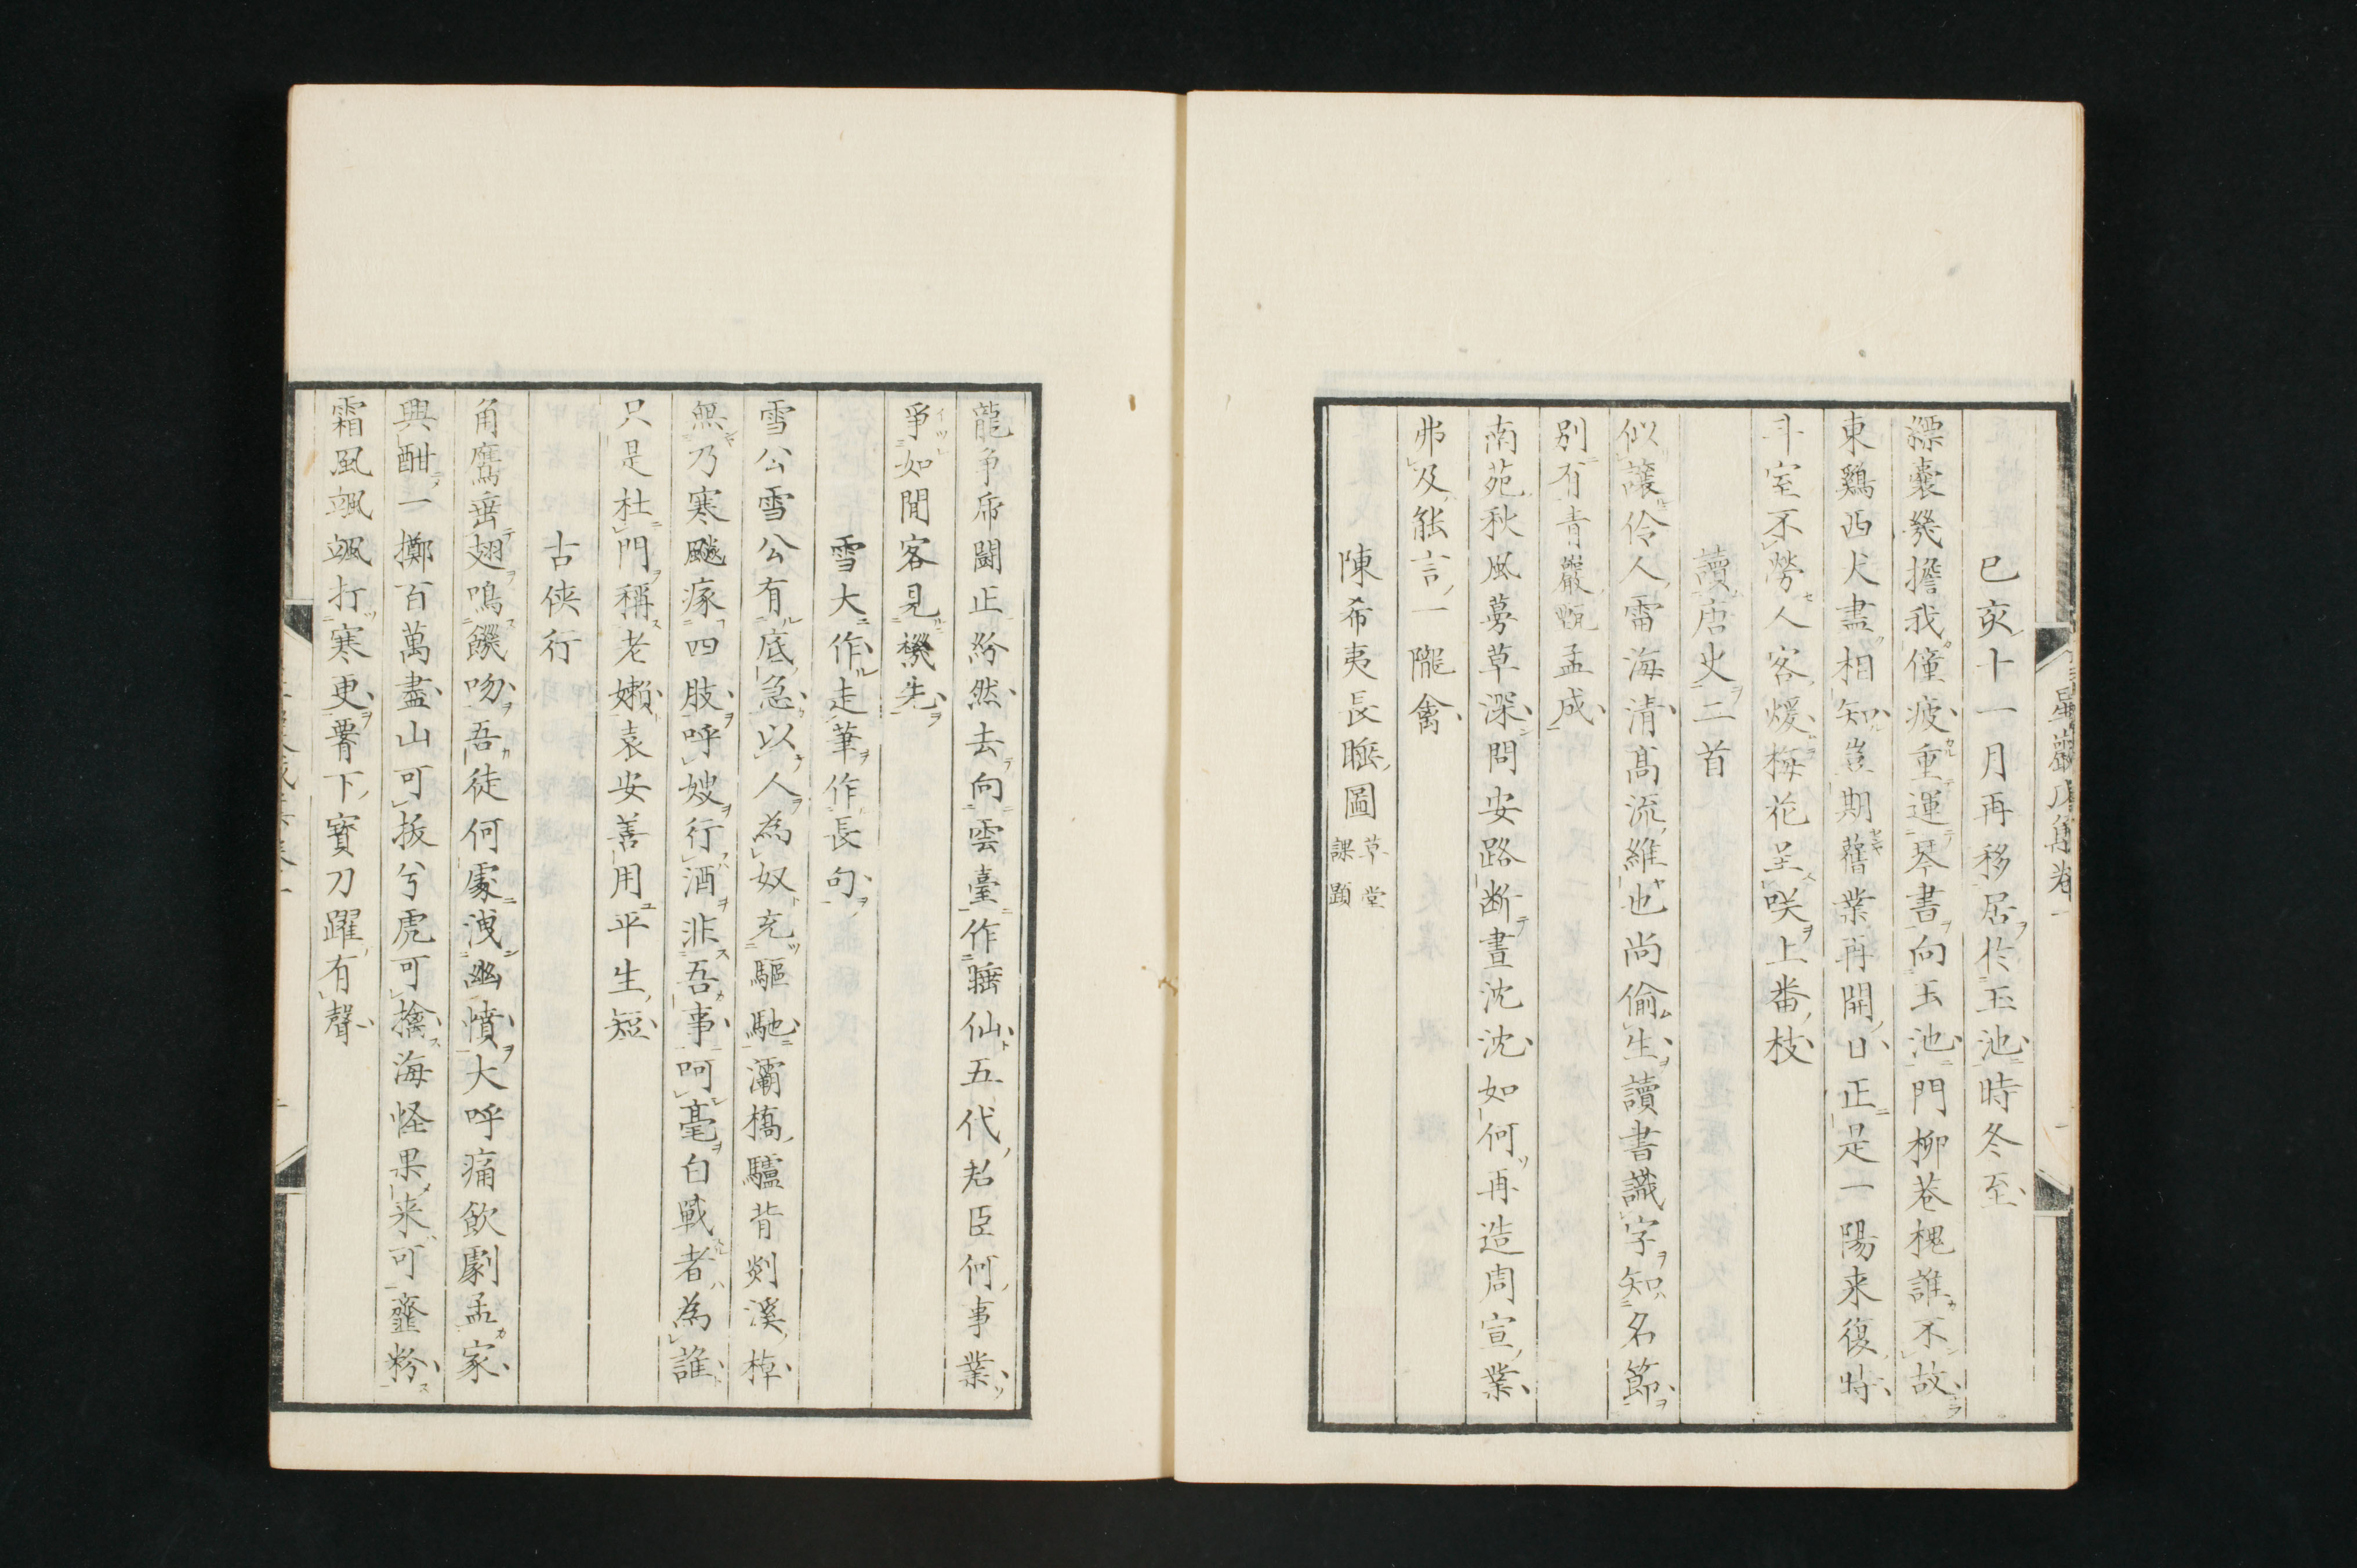 己亥十一月再移居於玉池時冬至
縹嚢幾擔我僮疲重運琴書向玉池門柳巷槐誰不故
東鷄西犬盡相知豈期舊業再開日正是一陽来復時
斗室不勞人客煖梅花呈咲上番枝
讀唐史二首
似譲伶人雷海清高流維也尚偷生讀書識字知名節
別有青巖甄孟成
南苑秋風蔓草深問安路断晝沈沈如何再造周宣業
弗及能言一隴禽
陳希夷長睡圖 草堂課題
龍争乕闘正紛然去向雲臺作睡仙五代君臣何事業
爭如閒客見機先
雪大作走筆作長句
雪公雪公有底急以人為奴充驅馳灞橋驢背剡溪棹
無乃寒飈瘃四肢呼嫂行酒非吾事呵毫白戰者為誰
只是杜門稱老嬾袁安善用平生短
古侠行
角鷹垂翅鳴饑吻吾徒何處洩幽憤大呼痛飲劇孟家
興酣一擲百萬盡山可抜兮虎可擒海怪果来可虀粉
霜風颯颯打寒更 下寳刀躍有聲